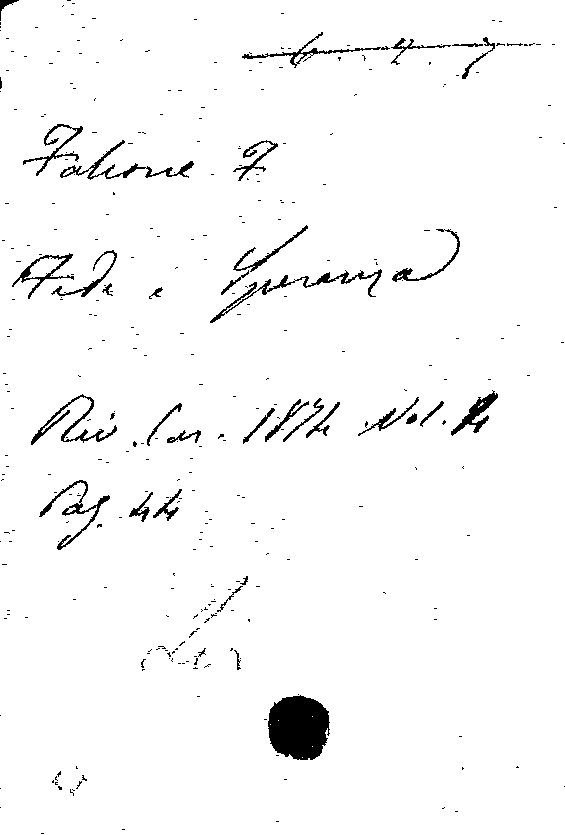 6. 4. 7
Falione F
Fede e Speranza
Riv. Car. 1874 Vol. 4
Pag. 44